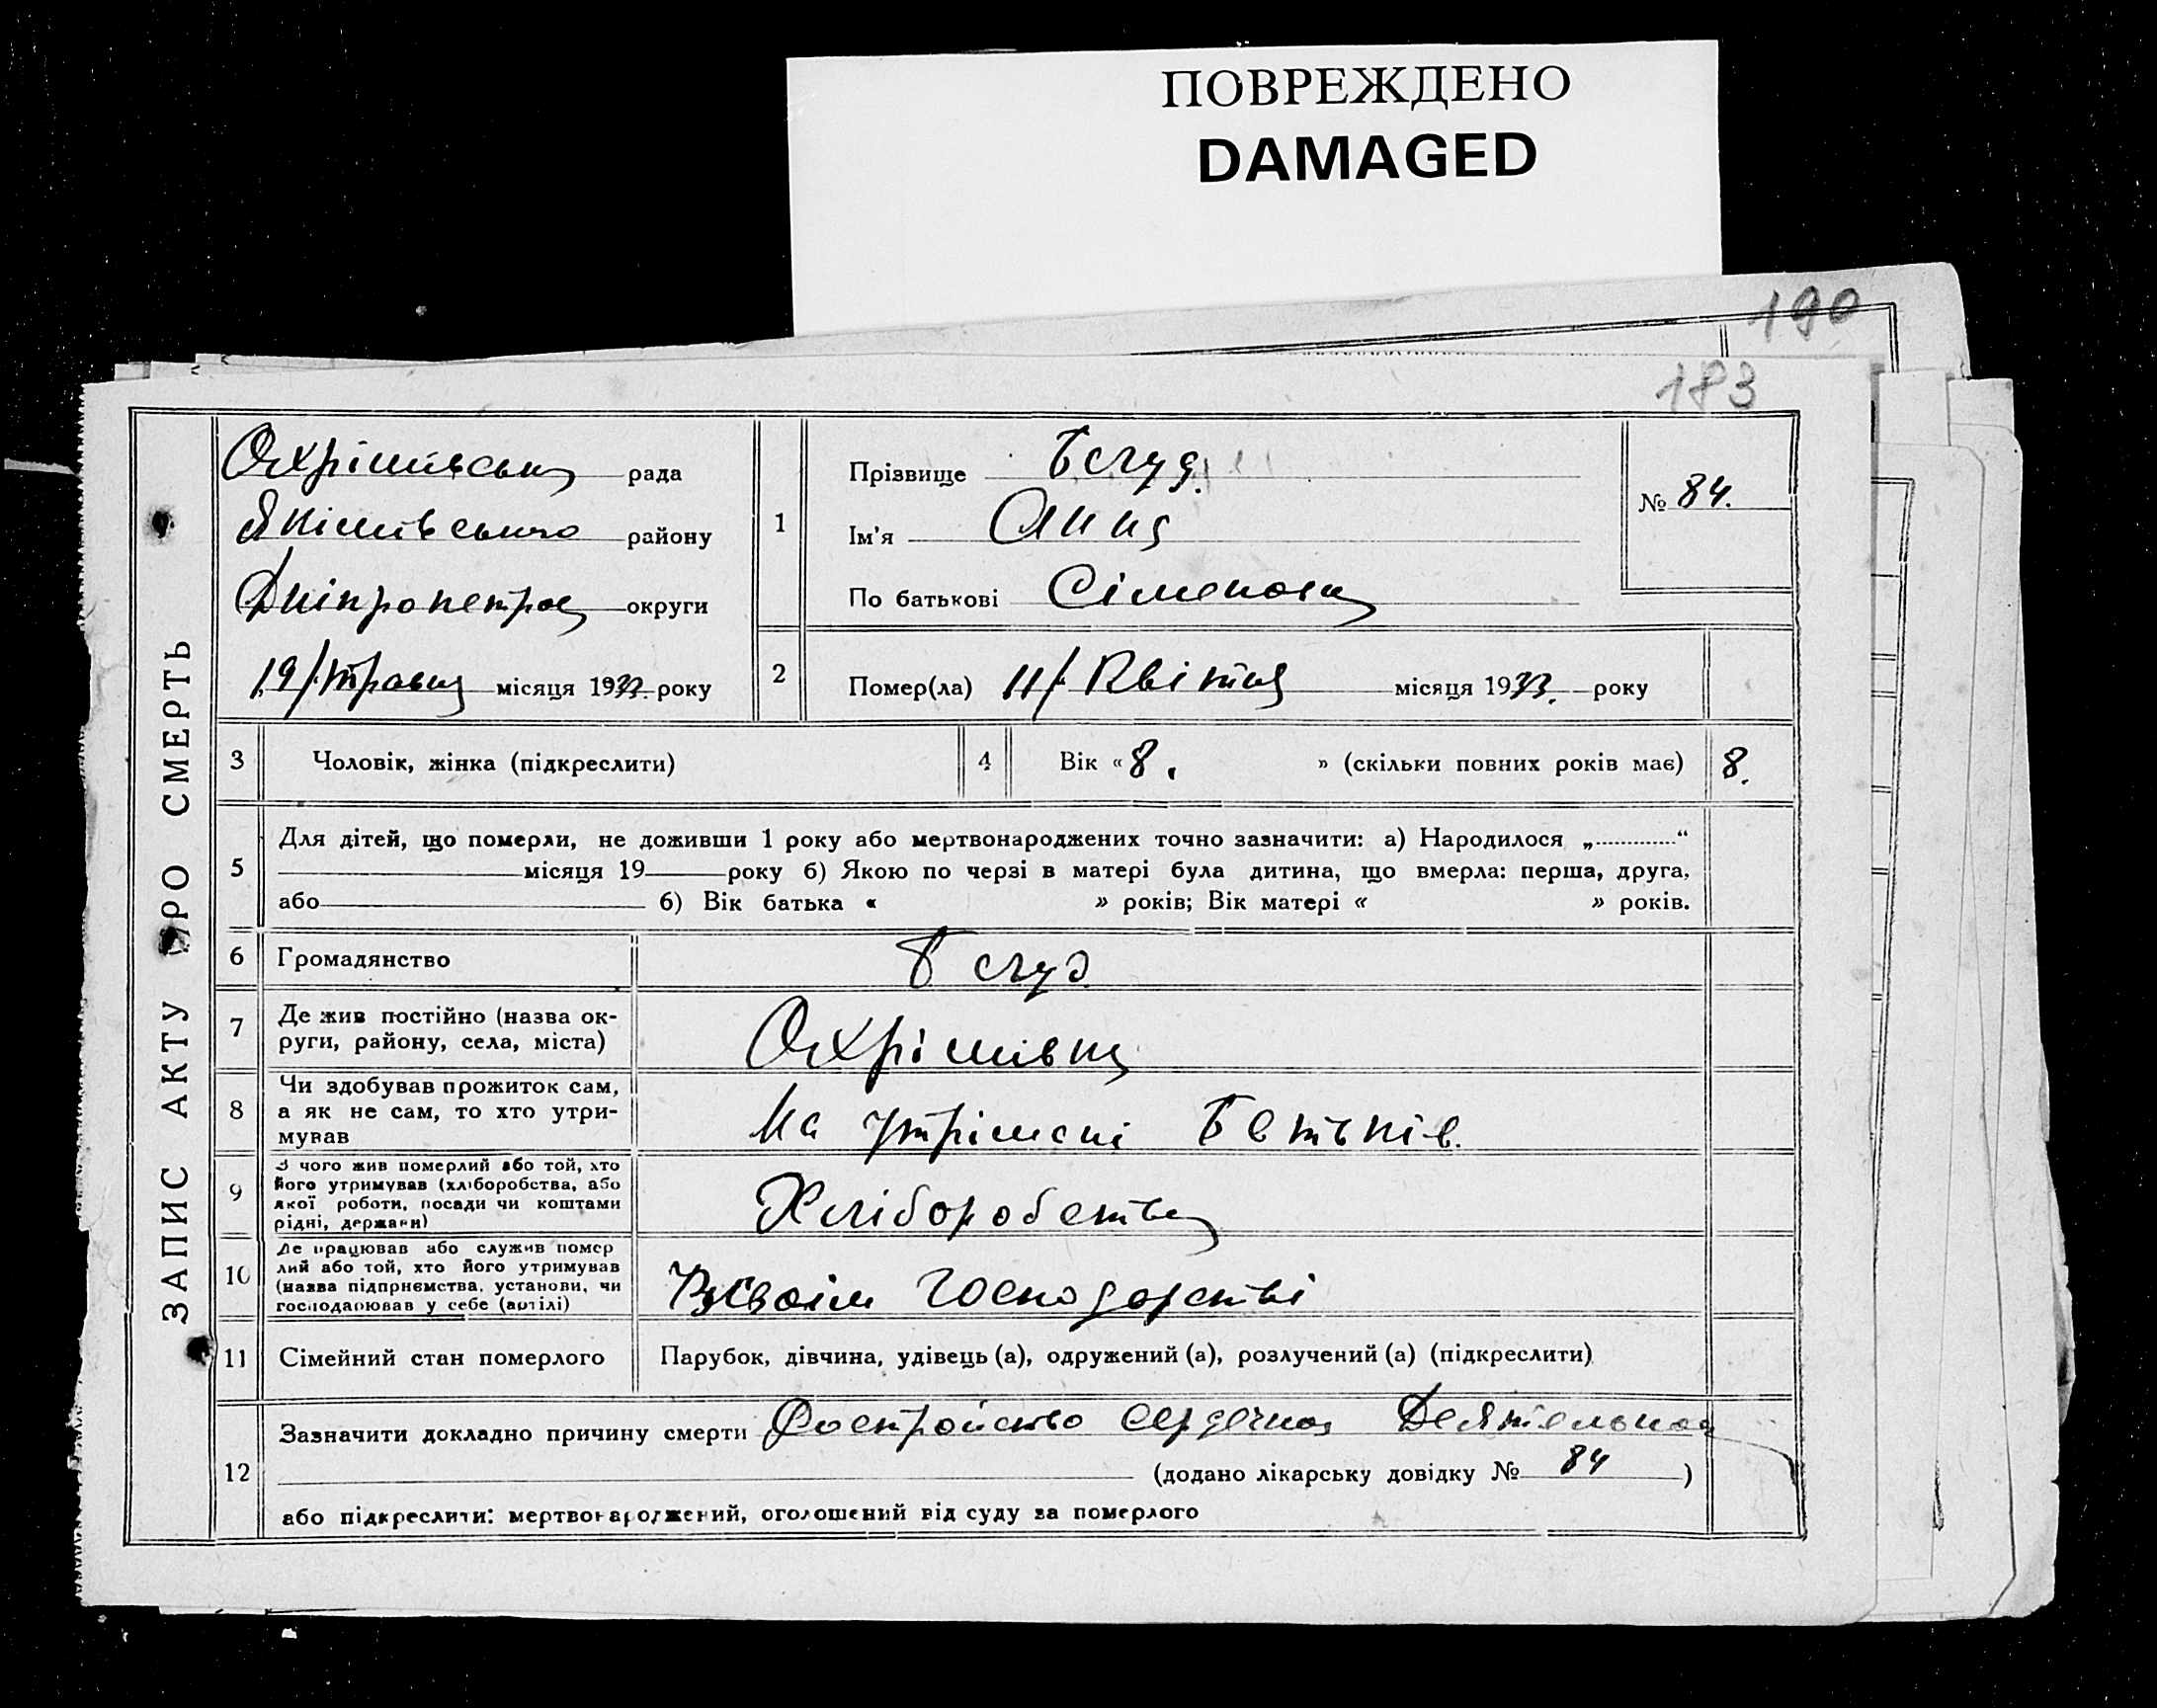 ПОВРЕЖДЕНО
DAMAGED
190
183
ЗАПИС АКТУ ПРО СМЕРТЬ
Охрімівська рада
Якімівського району
Дніпропетров округи
19/травня місяця 1933. року
1
Прізвище
Ім'я Анна
По батькові Сіменовна
№ 84.
2
Помер(ла) 11/ Квітня місяця 1933. року
3 Чоловік, жінка (підкреслити)
4 Вік « 8. » (скільки повних років має) 8.
5
Для дітей, що померли, не доживши 1 року або мертвонароджених точно зазначити: а) Народилося „............“
місяця 19 року б) Якою по черзі в матері була дитина, що вмерла: перша, друга,
або б) Вік батька « » років; Вік матері « » років.
6 Громадянство
7 Де жив постійно (назва ок-
руги, району, села, міста)
Охрімівка
8 Чи здобував прожиток сам,
а як не сам, то хто утри-
мував
На утрімані Батьків.
9 З чого жив померлий або той, хто
його утримував (хліборобства, або
якої роботи, посади чи коштами
рідні, держави)
Хліборобства
10 Де працював або служив помер
лий або той, хто його утримував
(назва підприємства, установи, чи
господарював у себе (артілі)
В своїм господарстві
11 Сімейний стан померлого Парубок, дівчина, удівець (а), одружений (а), розлучений (а) (підкреслити)
12 Зазначити докладно причину смерти Ростройство сердечноя Деятельноя
(додано лікарську довідку № 84 )
або підкреслити: мертвонароджений, оголошений від суду за померлого